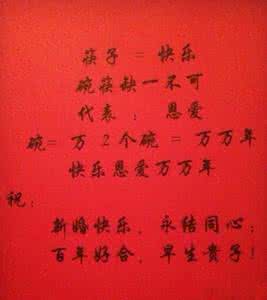 筷子 = 快乐
碗筷缺一不可
代表 : 恩爱
碗= 万 2个碗 = 万万年
快乐恩爱万万年
祝:
新婚快乐, 永结同心;
百年好合, 早生贵子!